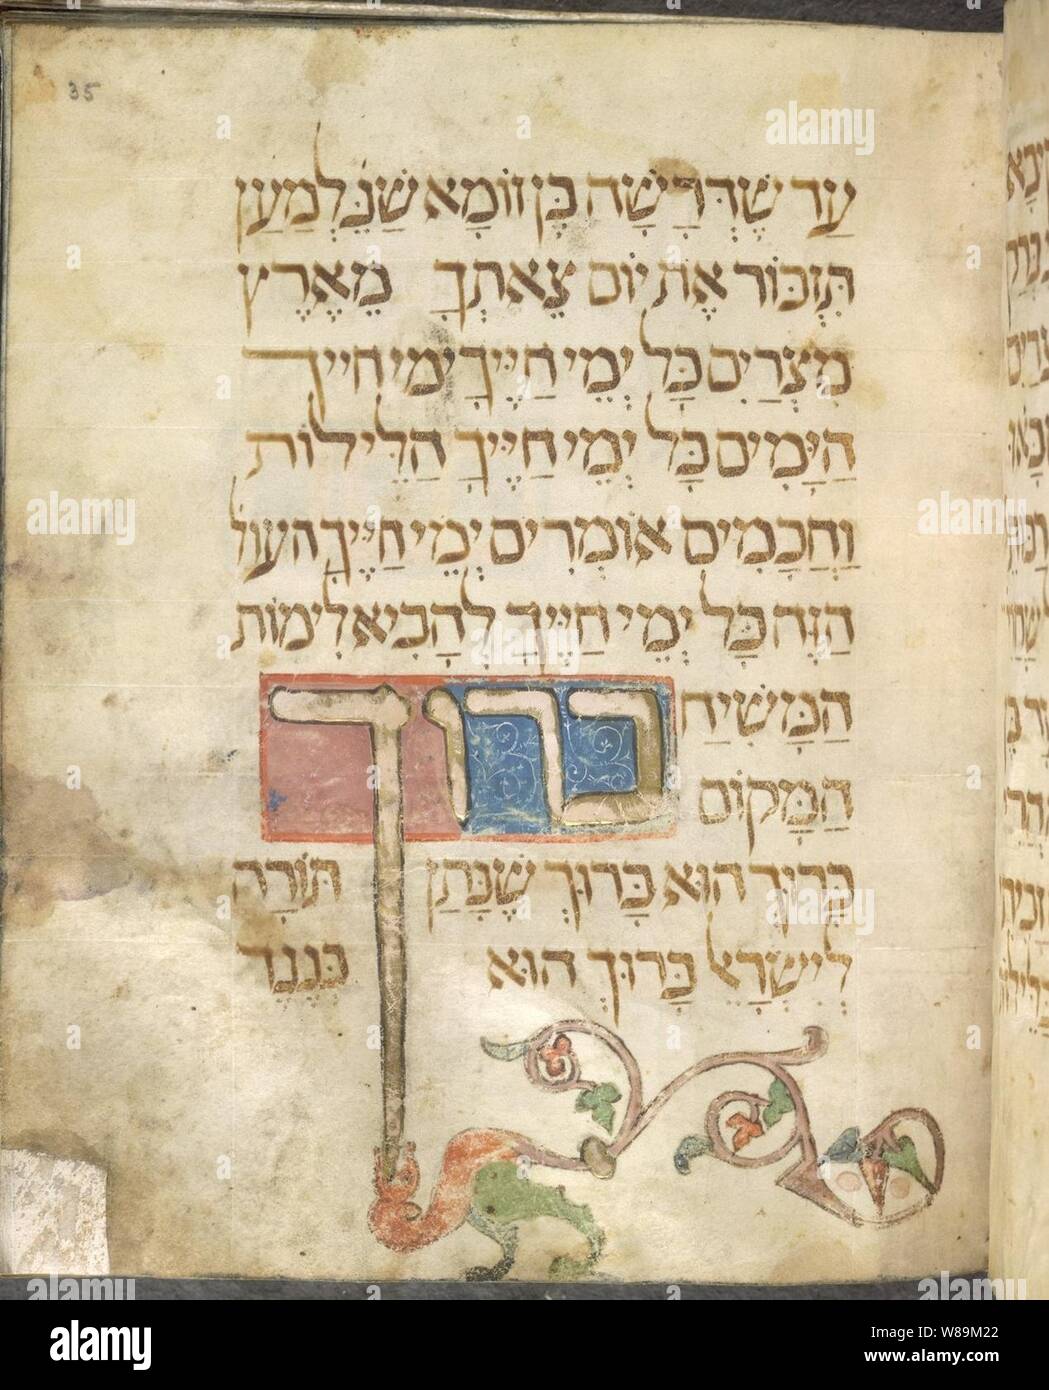 35
עַד שֶׁדְּרָשָׁהּ בֶּן זוֹמָא שֶׁנֶּ לְמַעַן
תִּזְכּוֹר אֶת יוֹם צֵאתְךָ מֵאֶרֶץ
מִצְרַיִם כָּל יְמֵי חַיֶּיךָ ימי חייך
הַיָּמִים כָּל יְמֵי חַיֶּיךָ הַלֵּילוֹת
וַחֲכָמִים אוֹמְרִים יְמֵי חַיֶּיךָ העול
הַזֶּה כָּל יְמֵי חַיֶּיךָ לְהָבִיא לִימוֹת
הַמָּשִׁיחַ ברוך
הַמָּקוֹם
בָּרוּךְ הוּא בָּרוּךְ שֶׁנָּתַן תּוֹרָה
לְיִשְׂרָאֵל בָּרוּךְ הוּא כְּנֶגֶד
alamy
alamy stock photo
W89M22
www.alamy.com